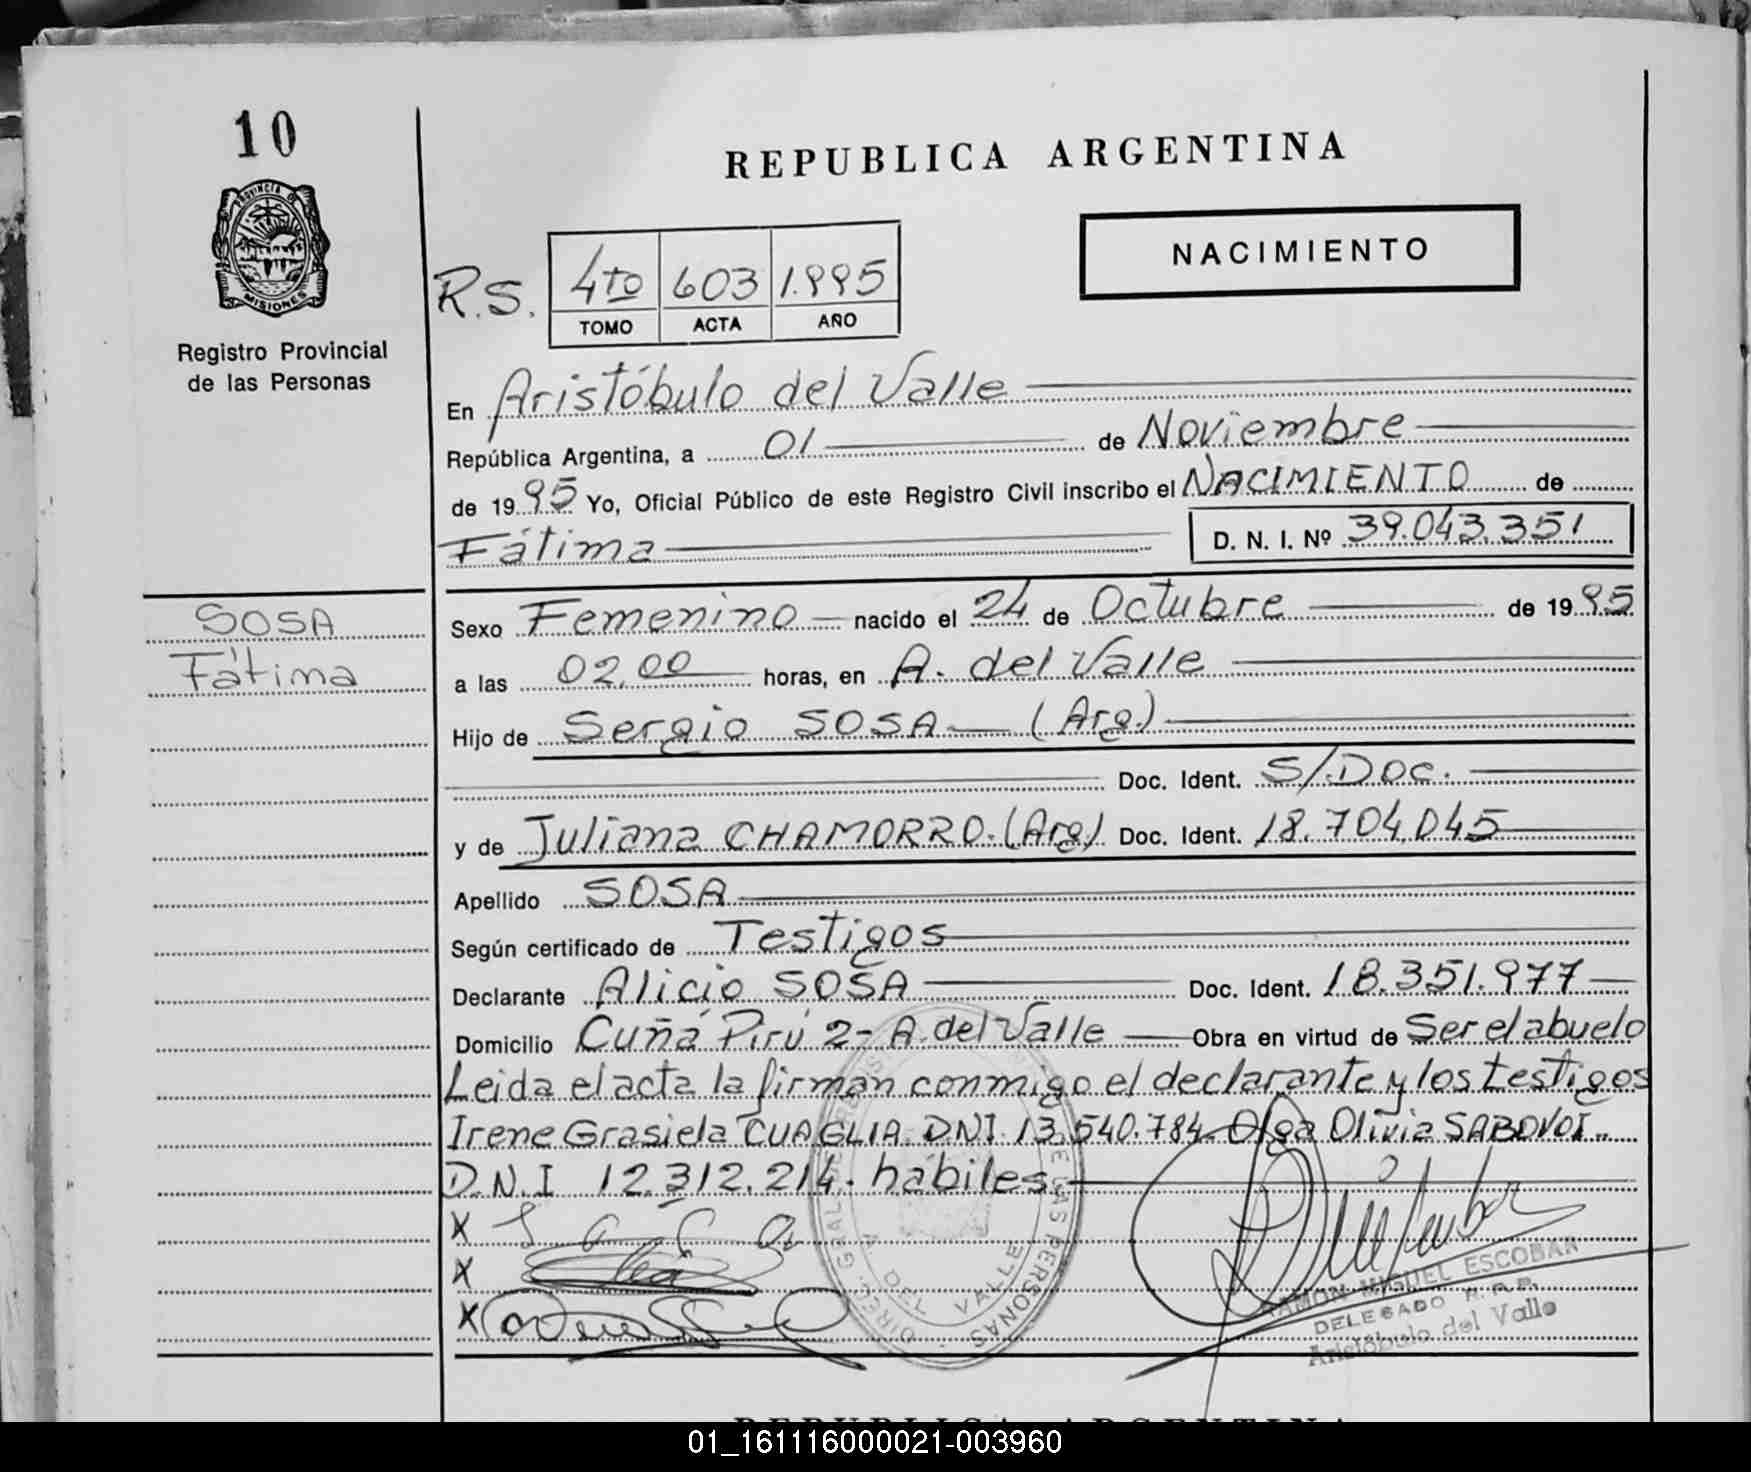 10
PROVINCIA DE
MISIONES
Registro Provincial
de las Personas
REPUBLICA ARGENTINA
NACIMIENTO
R.S. 4to 603 1.995
TOMO ACTA AÑO
En Aristóbulo del Valle
República Argentina, a 01 de Noviembre
de 1995 Yo, Oficial Público de este Registro Civil inscribo el NACIMIENTO de
Fátima D. N. I. Nº 39.043.351
SOSA
Fátima
Sexo Femenino nacido el 24 de Octubre de 1995
a las 02,00 horas, en A. del Valle
Hijo de Sergio SOSA (Arg.)
Doc. Ident. S/.Doc.
y de Juliana CHAMORRO.(Arg) Doc. Ident. 18.704.045
Apellido SOSA
Según certificado de Testigos
Declarante Alicio SOSA Doc. Ident. 18.351.977
Domicilio Cuñá Pirú 2- A. del Valle Obra en virtud de Ser el abuelo
Leida el acta la firman conmigo el declarante y los testigos
Irene Grasiela CUAGLIA. DNI. 13.540.784- Olga Olivia SABOVOI..
D.N.I 12.312.214. hábiles.
X
X
X
DIREC. GRAL. DE LAS PERSONAS
A. DEL VALLE
RAMON MIGUEL ESCOBAR
DELEGADO R.R.P.
Aristóbulo del Valle
REPUBLICA ARGENTINA
01_161116000021-003960